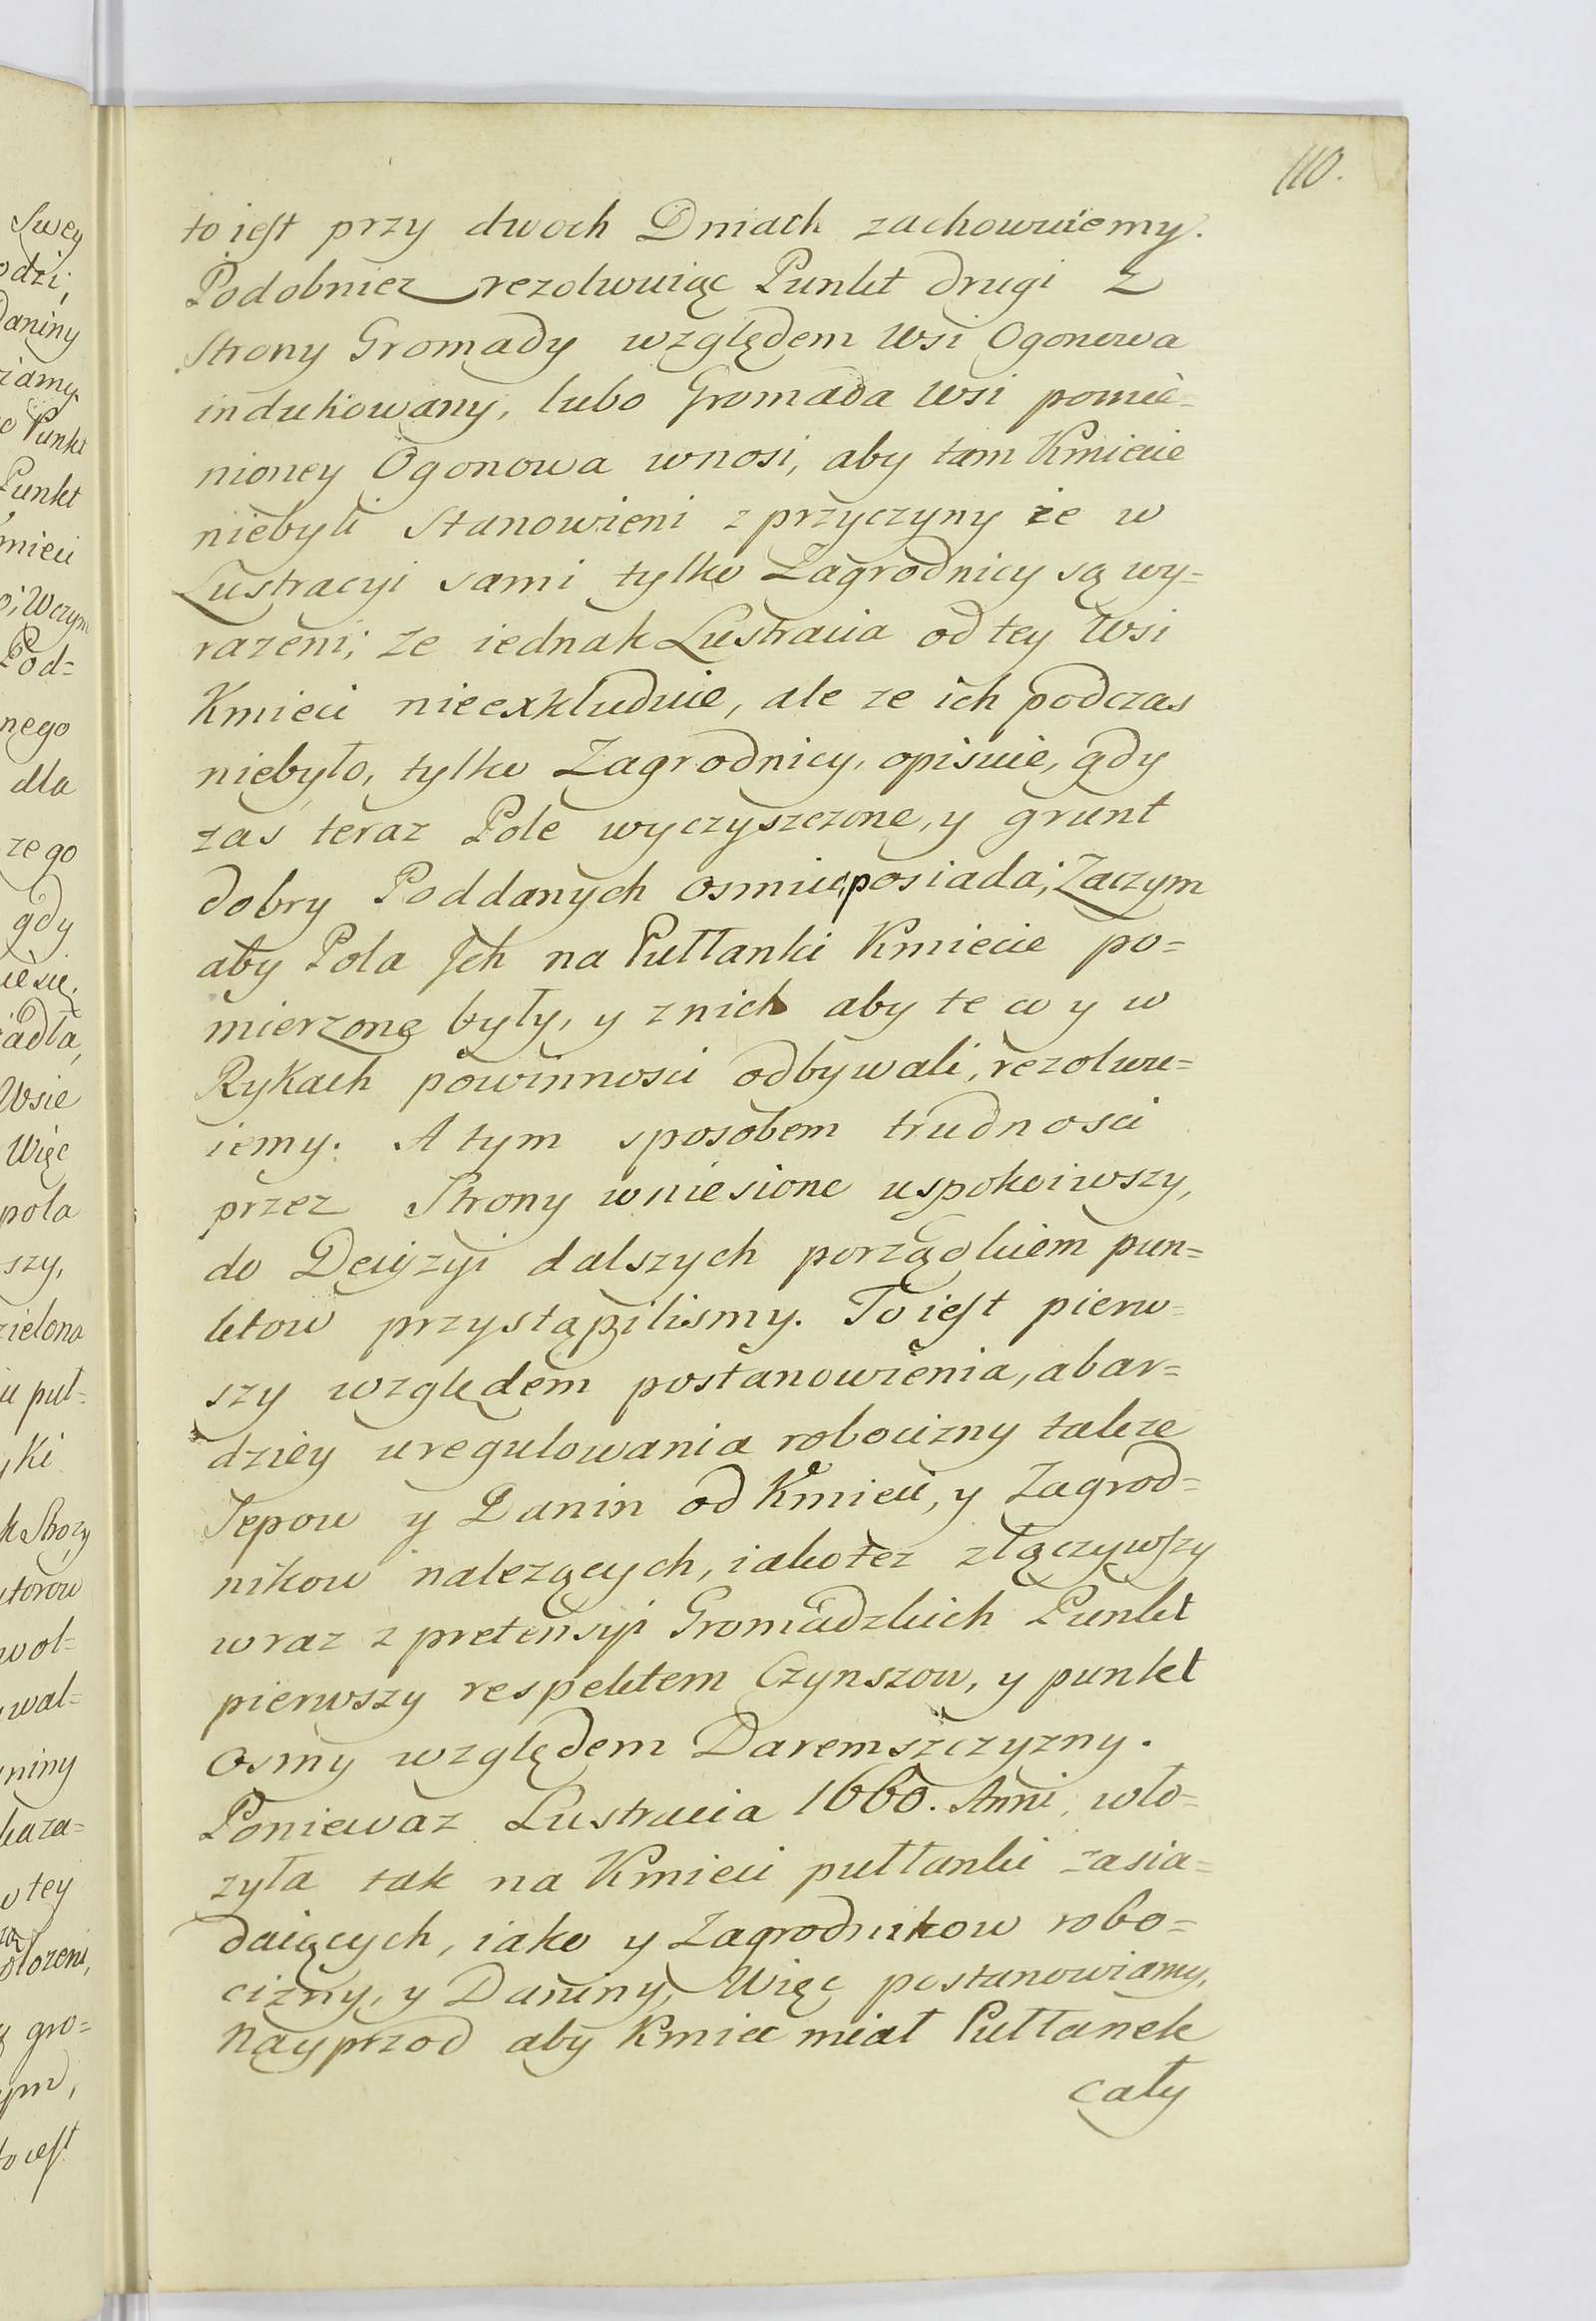 110.
to iest przy dwoch Dniach zachowuiemy.
Podobniez rezolwuiąc Punkt drugi z
Strony Gromady względem Wsi Ogonowa
indukowany, lubo Gromada Wsi pomie-
nioney Ogonowa wnosi, aby tam Kmiecie
niebyli Stanowieni z przyczyny że w
Lustracyi sami tylko Zagrodnicy są wy=
razeni; Ze iednak Lustracia od tey Wsi
Kmieci nieexkluduie, ale ze ich podczas
niebyło, tylko Zagrodnicy, opisuie, gdy
zaś teraz Pole wyczyszczone, y grunt
dobry Poddanych osmiu posiada; Zaczym
aby Pola Jch na Pułłanki Kmiecie po=
mierzone były, y z nich aby te co y w
Rykach powinnosci odbywali, rezolwu=
iemy. A tym sposobem trudnosci
przez Strony wniesione uspokoiwszy,
do Decyzyi dalszych porządkiem pun=
ktow przystąpilismy. To iest pierw-
szy względem postanowienia, a bar=
dziey uregulowania robocizny także
Sepow y Danin od Kmieci, y Zagrod=
nikow nalezących, iakotez złączywszy
wraz z pretensyi Gromadzkich Punkt
pierwszy respektem Czynszow, y punkt
osmy względem Daremszczyzny.
Poniewaz Lustracia 1660. Anni, wło=
zyła tak na Kmieci pułłanki zasia=
daiących, iako y Zagrodnikow robo=
cizny, y Daniny, Więc postanowiamy,
Nayprzod aby Kmieć miał Pułłanek
cały
Swey
odzi,
Daniny
Punkt
Punkt
mieci
Wczym
Pod=
nego
dla
zego
gdy
iadła,
Wsie
Więc
pola
szy,
zielona
puł=
ki
torow
wol=
wal=
niny
kaza=
tey
gro=
ym,
to iest